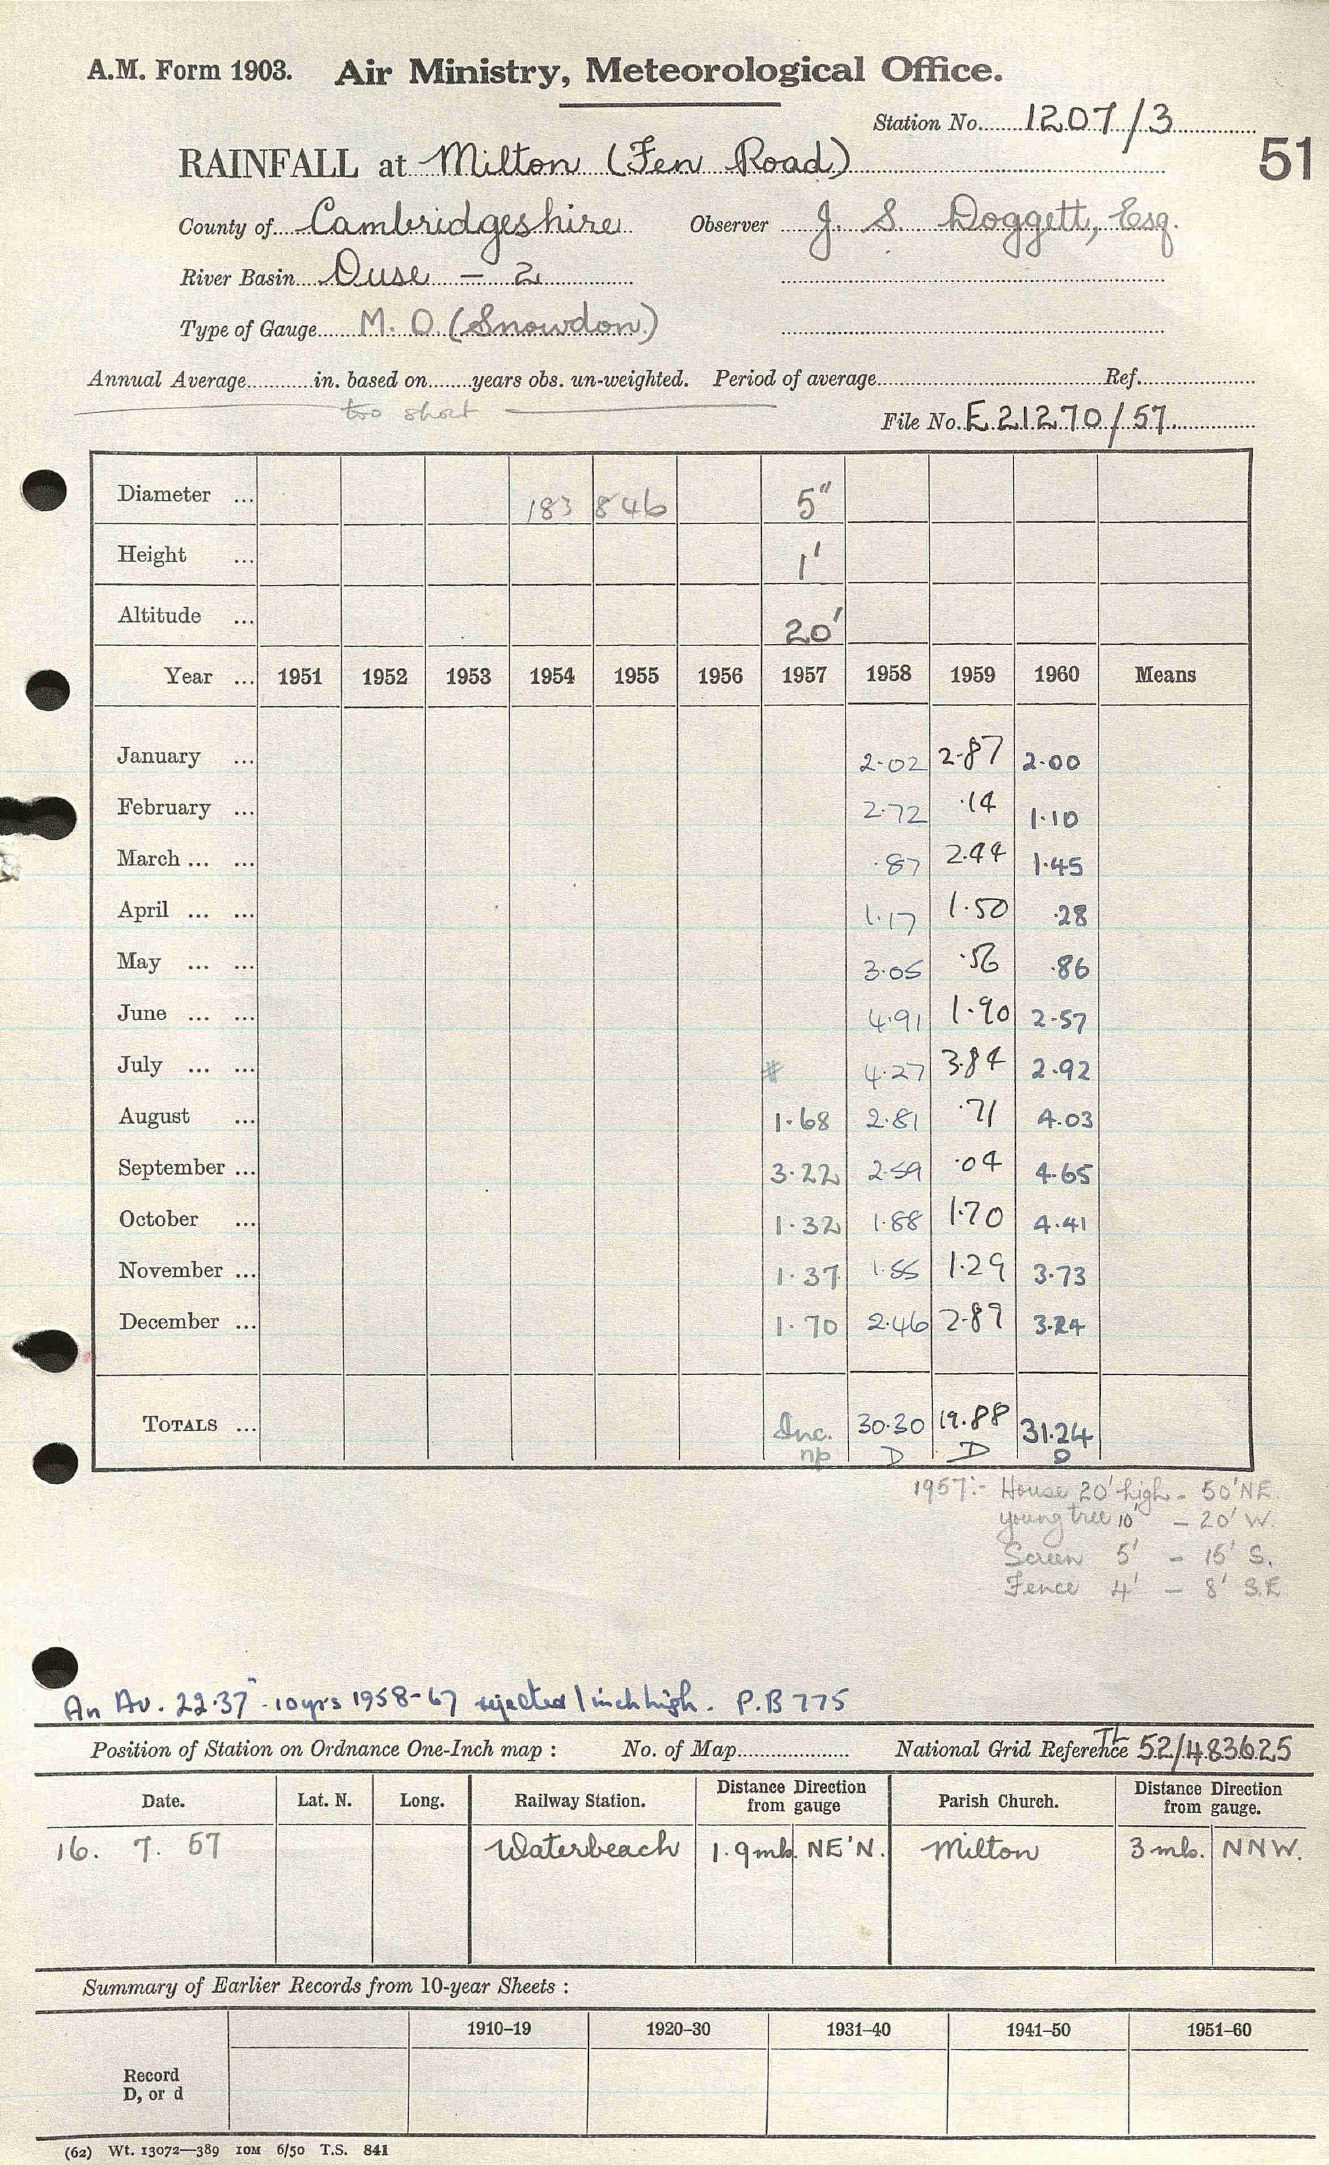 A.M. Form 1903. Air Ministry, Meteorological Office.
Station No. 1207/3
51
RAINFALL at Milton (Fen Road)
County of Cambridgeshire Observer J. S. Doggett, Esq.
River Basin Ouse – 2
Type of Gauge M. O (Snowdon)
Annual Average in. based on years obs. un-weighted. Period of average Ref.
too short
File No. E 21270/57
Diameter ... 183 846 5"
Height ... 1'
Altitude ... 20'
Year ... 1951 1952 1953 1954 1955 1956 1957 1958 1959 1960 Means
January ... 2.02 2.87 2.00
February ... 2.72 .14 1.10
March ... ... .87 2.44 1.45
April ... ... 1.17 1.50 .28
May ... ... 3.05 .56 .86
June ... ... 4.91 1.90 2.57
July ... ... # 4.27 3.84 2.92
August ... 1.68 2.81 .71 4.03
September ... 3.22 2.59 .04 4.65
October ... 1.32 1.88 1.70 4.41
November ... 1.37 1.55 1.29 3.73
December ... 1.70 2.46 2.89 3.24
TOTALS ... Inc. 30.30 19.88 31.24
np D D D
1957:- House 20' high - 50' NE.
young tree 10' – 20' W.
Screen 5' – 15' S.
Fence 4' – 8' S.E
An Av. 22.37" - 10 yrs 1958-67 rejected 1 inch high. P.B 775
Position of Station on Ordnance One-Inch map : No. of Map National Grid Reference TL 52/483625
Date. Lat. N. Long. Railway Station. Distance from Direction gauge Parish Church. Distance from Direction gauge.
16. 7. 57 Waterbeach 1.9 mls. NE'N. Milton 3 mls. NNW.
Summary of Earlier Records from 10-year Sheets :
1910–19 1920–30 1931–40 1941–50 1951–60
Record
D, or d
(62) Wt. 13072—389 10M 6/50 T.S. 841